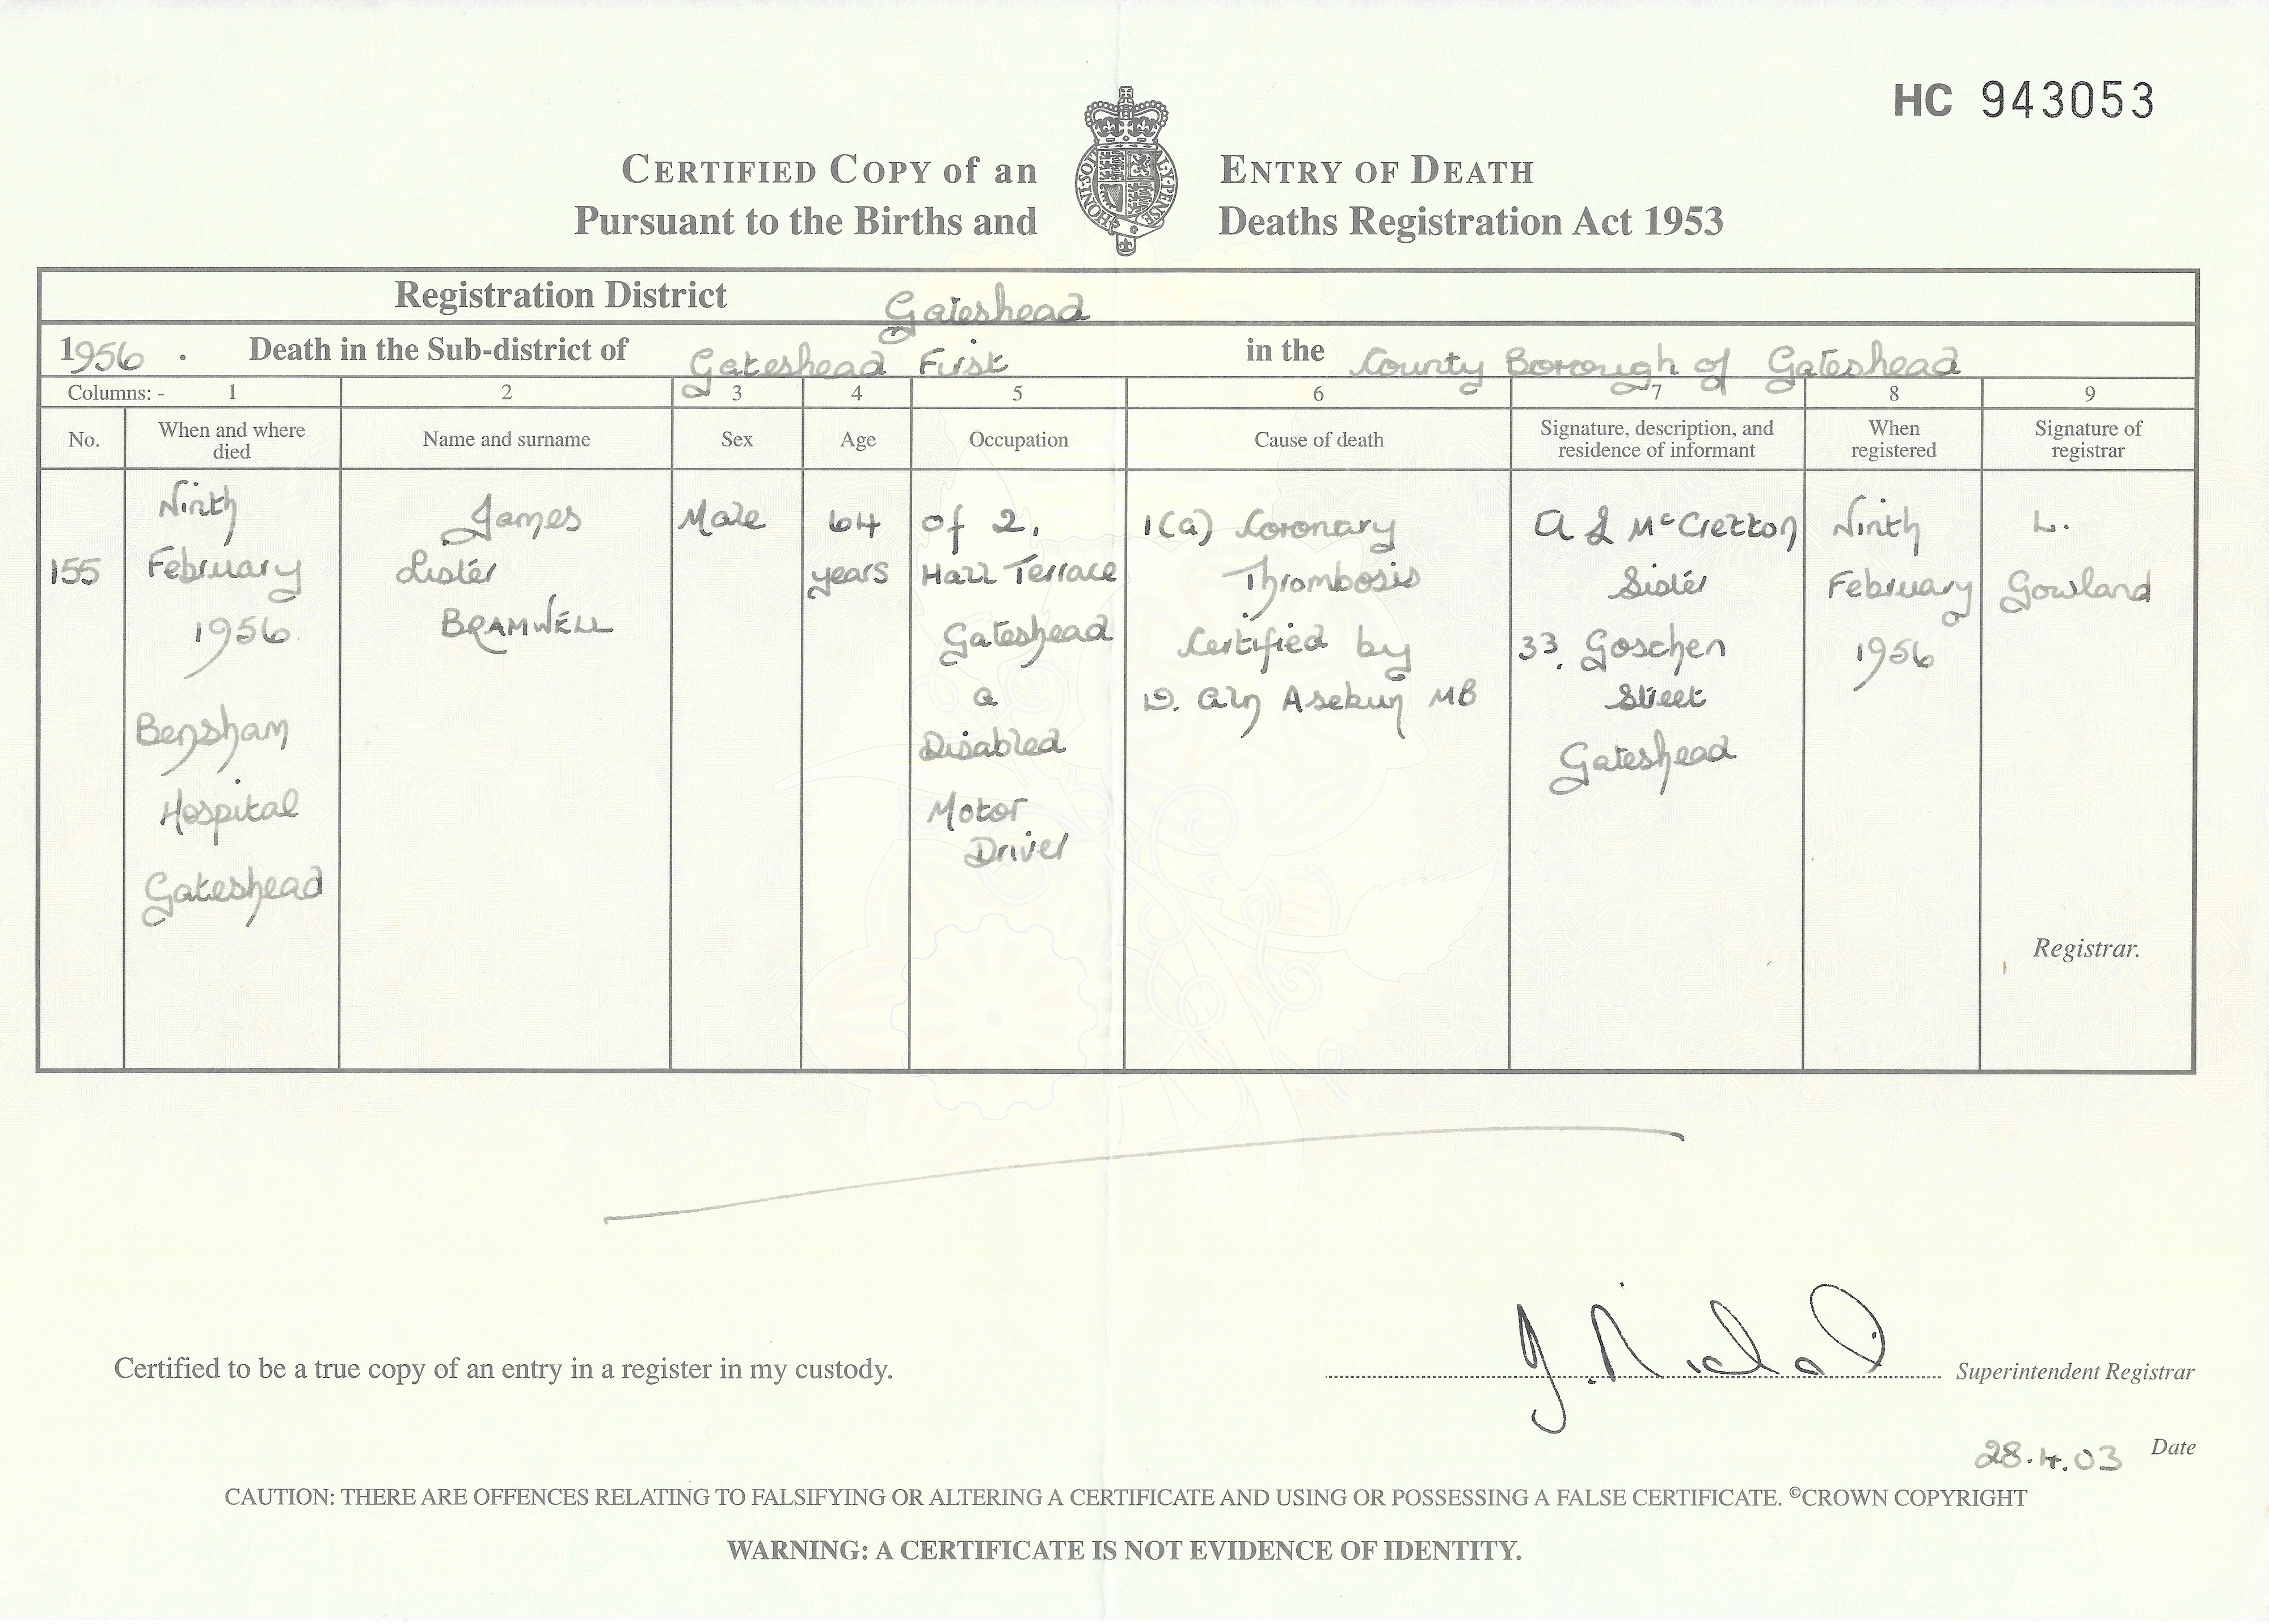 HC 943053
CERTIFIED COPY of an ENTRY OF DEATH
Pursuant to the Births and Deaths Registration Act 1953
HONI·SOI L·Y·PENSE
Registration District Gateshead
1956. Death in the Sub-district of Gateshead First in the County Borough of Gateshead
Columns: - 1 2 3 4 5 6 7 8 9
No. When and where died Name and surname Sex Age Occupation Cause of death Signature, description, and residence of informant When registered Signature of registrar
155
Ninth
February
1956
Bensham
Hospital
Gateshead
James
Lister
BRAMWELL
Male
64
years
of 2,
Hall Terrace
Gateshead
a
Disabled
Motor
Driver
1(a) Coronary
Thrombosis
Certified by
D. MB
A L McCretton
Sister
33, Goschen
Street
Gateshead
Ninth
February
1956
L.
Gowland
Registrar.
Certified to be a true copy of an entry in a register in my custody.
J. Nichol Superintendent Registrar
28.4.03 Date
CAUTION: THERE ARE OFFENCES RELATING TO FALSIFYING OR ALTERING A CERTIFICATE AND USING OR POSSESSING A FALSE CERTIFICATE. ©CROWN COPYRIGHT
WARNING: A CERTIFICATE IS NOT EVIDENCE OF IDENTITY.